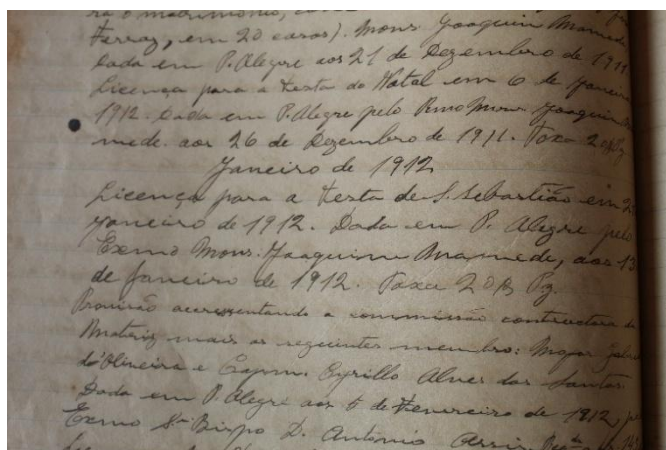 ra o matrimonio,
Ferraz, em 20 caros). Mons. Joaquim Mamede
Dada em P. Alegre aos 21 de Dezembro de 1911
Licença para a Festa do Natal em 6 de Janeiro
1912. Dada em P. Alegre pelo Rmo Mons. Joaquim
mede. aos 26 de Dezembro de 1911. Taxa 20$ Pg
Janeiro de 1912
Licença para a Festa de S. Sebastião em 2
Janeiro de 1912. Dada em P. Alegre pelo
Exmo Mons. Joaquim Mamede, aos 13
de Janeiro de 1912. Taxa 20$ Pg.
Provisão accrescentando a commissão constructora da
Matriz mais os seguintes membro: Major
de Oliveira e Capm. Cyrillo Alves dos Santos
Dada em P. Alegre aos 6 de Fevereiro de 1912,
Exmo Snr Bispo D. Antonio Assis